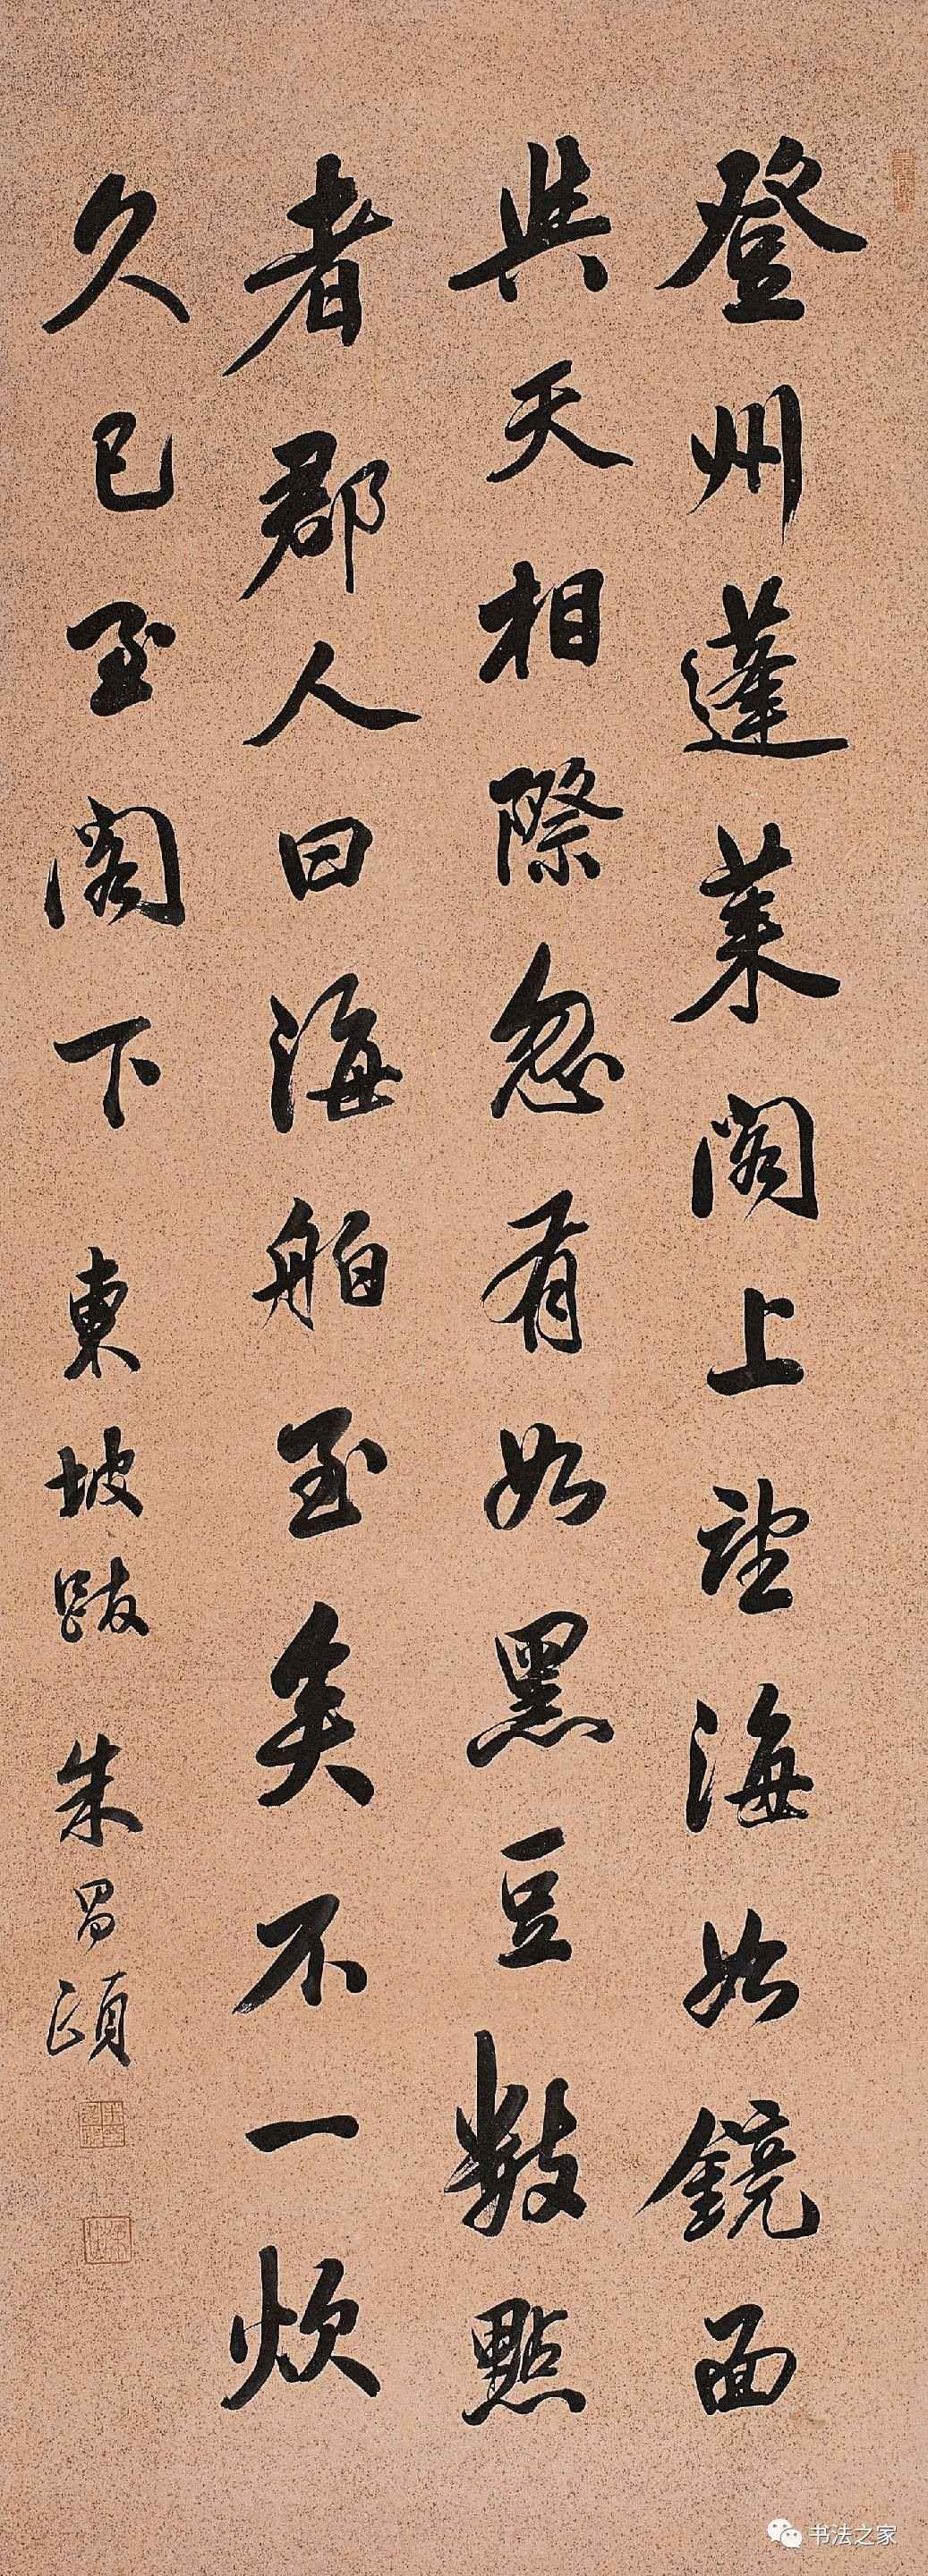 登州蓬萊閣上望海如鏡面
與天相際忽有如黑豆數點
者郡人曰海舶至矣不一炊
久已至閣下 東坡跋 朱昌頤
书法之家